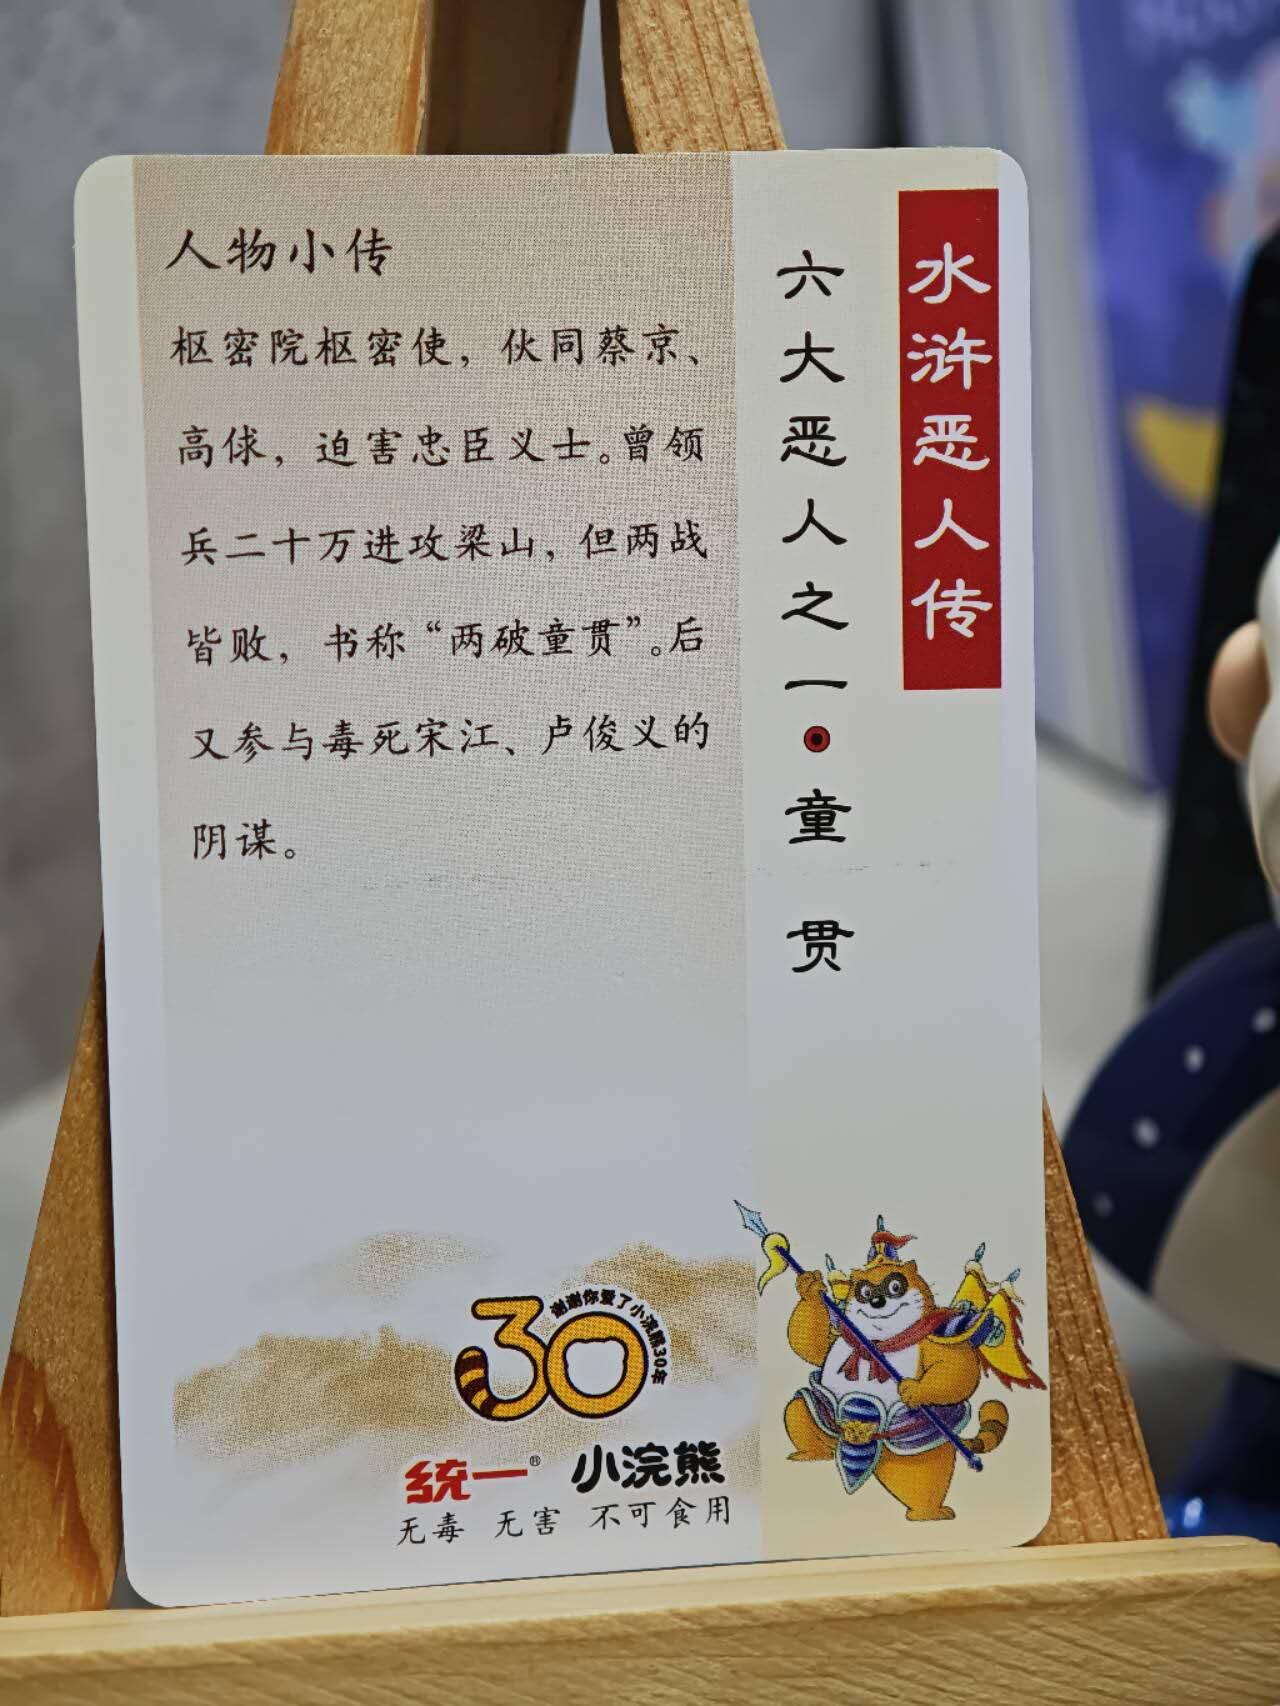 水浒恶人传
六大恶人之一●童贯
人物小传
枢密院枢密使，伙同蔡京、
高俅，迫害忠臣义士。曾领
兵二十万进攻梁山，但两战
皆败，书称“两破童贯”。后
又参与毒死宋江、卢俊义的
阴谋。
30
谢谢你爱了小浣熊30年
统一® 小浣熊
无毒 无害 不可食用